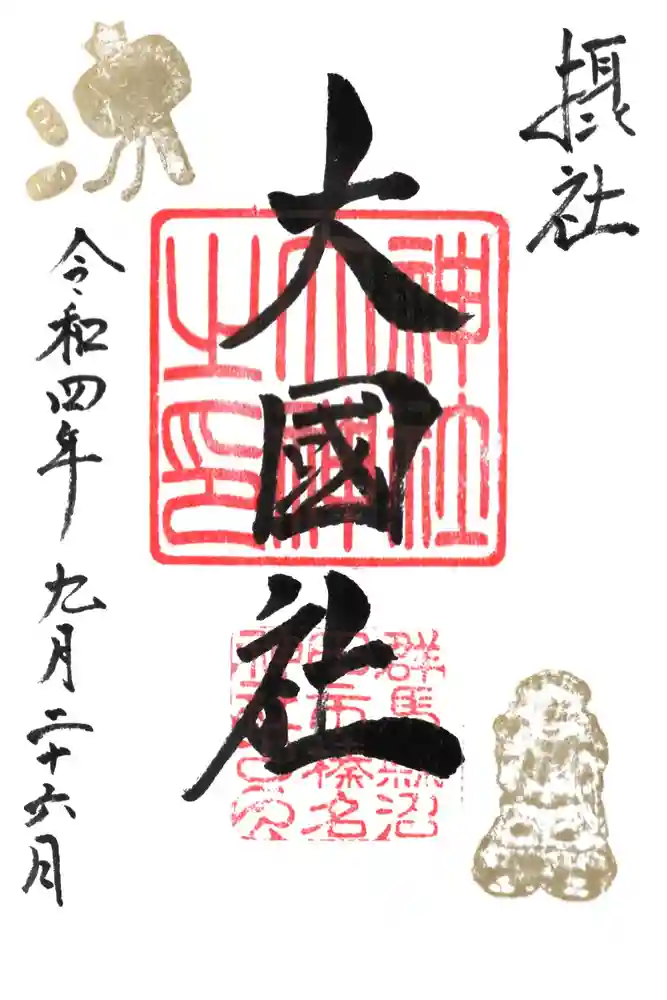 摂社
大國社
令和四年 九月二十六月
神社
之印
群馬縣沼
田市榛名